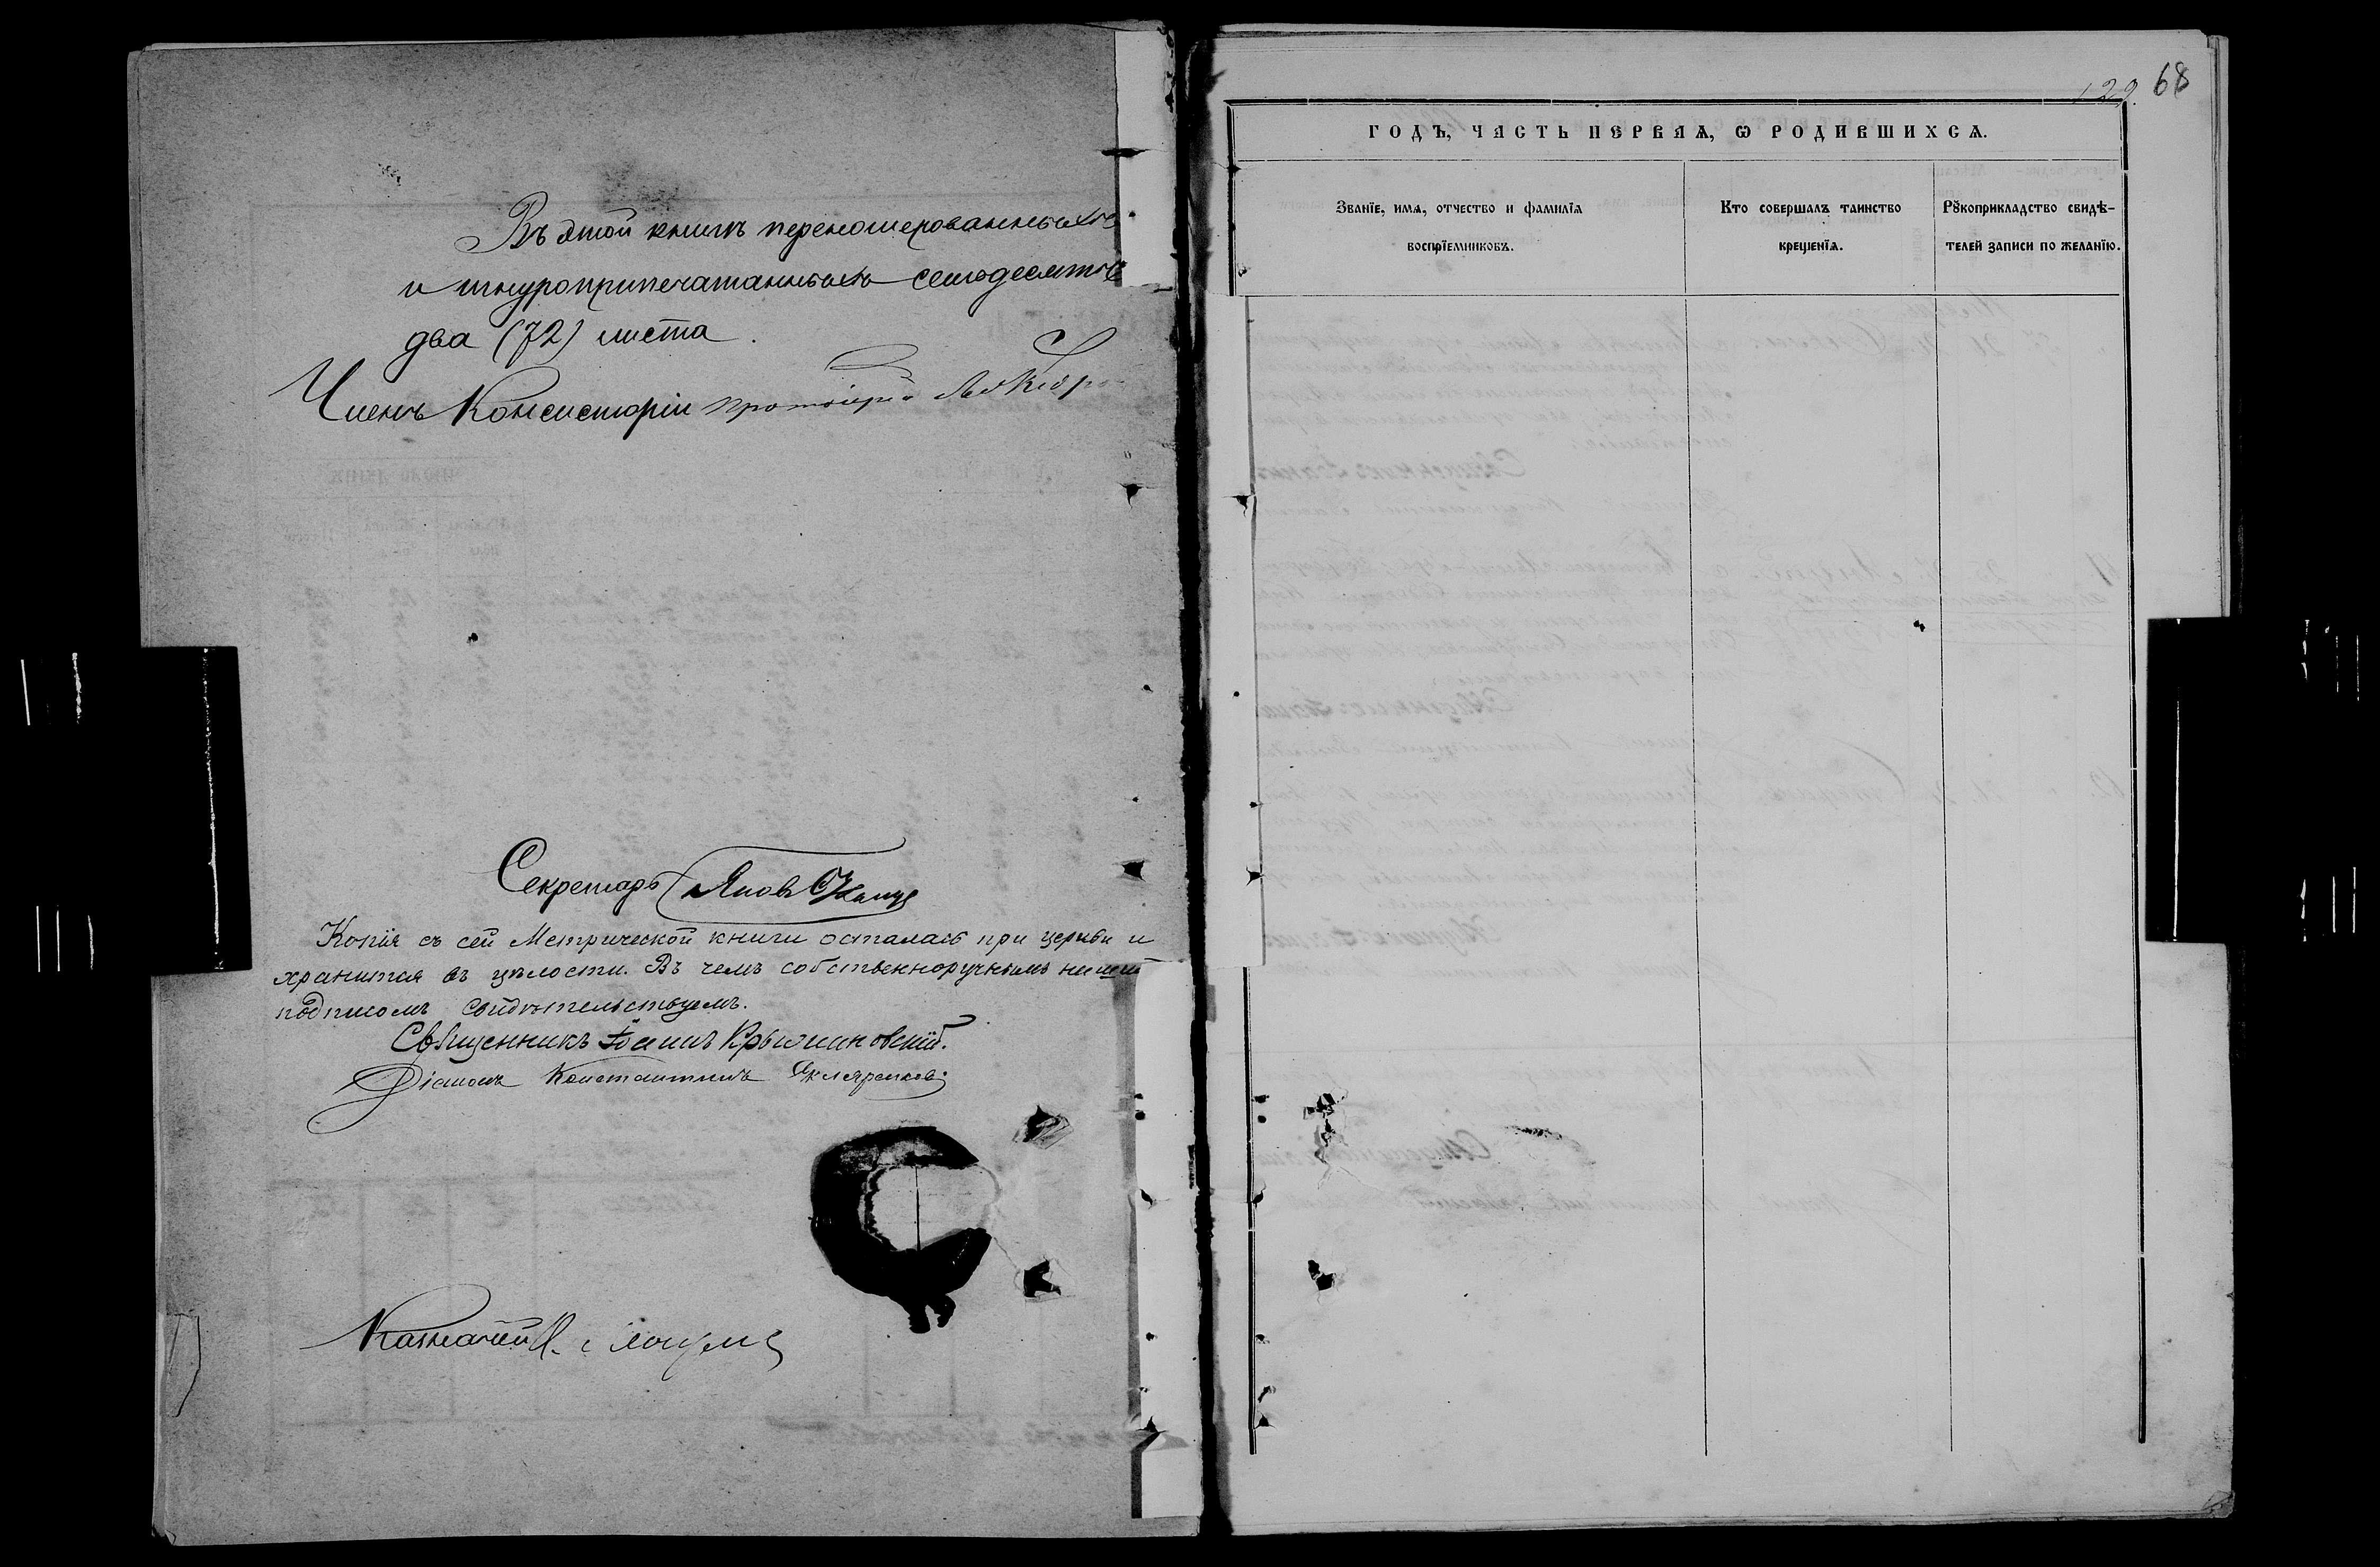 Въ этой книгѣ переномерованныхъ
и шнуроприпечатанныхъ семьдесятъ
два (72) листа.
Членъ Консисторіи протоіерей
Секретарь
Копія съ сей Метрической книги осталась при церкви и
хранится въ цѣлости. Въ чемъ собственноручнымъ
подписомъ свидѣтельствуемъ.
Священникъ Іоаннъ Крыжановскій.
Діаконъ Константинъ
Казначей
122. 68
ГОДЪ, ЧАСТЬ ПЕРВАѦ, Ѡ РОДИВШИХСѦ.
Званїе, имѧ, отчество и фамилїѧ
воспрїемниковъ.
Кто совершалъ таинство
крещенїѧ.
Рꙋкоприкладство свидѣ-
телей записи по желанїю.